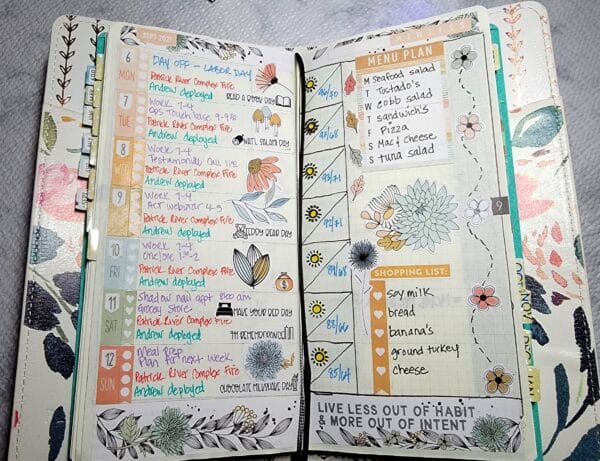 SEPT 2021
6
MON
DAY OFF - LABOR DAY
Patrick River Complex Fire
Andrew deployed
READ A BOOK DAY
7
TUE
Work 7-4
Patrick River Complex Fire
Andrew deployed
8
WED
Work 7-4
Patrick River Complex Fire
Andrew deployed
9
Work 7-4
Act webinar 4-5
Patrick River Complex Fire
Andrew deployed
TEDDY BEAR DAY
10
FRI
Work 7-4
Patrick River Complex Fire
Andrew deployed
11
SAT
Shadow nail appt 8:00 am
grocery store
Patrick River Complex Fire
Andrew deployed
MAKE YOUR BED DAY
9/11 REMEMBRANCE
12
SUN
Meal Prep
Plan for next week
Patrick River Complex Fire
Andrew deployed
CHOCOLATE MILKSHAKE DAY
MENU PLAN
M Seafood salad
T Tostado's
W cobb salad
T sandwich's
F Pizza
S Mac & Cheese
S tuna salad
9
SHOPPING LIST:
soy milk
bread
banana's
ground turkey
cheese
88/66
85/64
LIVE LESS OUT OF HABIT
& MORE OUT OF INTENT
OCT
NOV
DEC